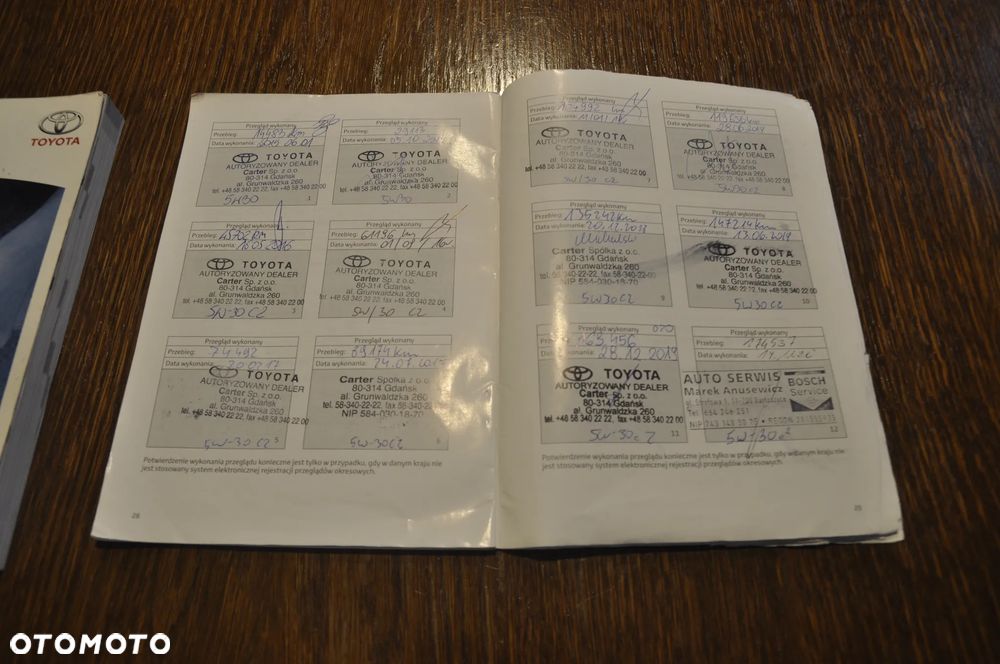 TOYOTA
Przegląd wykonany
Przebieg: 14483 km
Data wykonania: 2015.06.01
TOYOTA
AUTORYZOWANY DEALER
Carter Sp. z o.o.
80-314 Gdańsk
al. Grunwaldzka 260
tel. +48 58 340 22 22, fax +48 58 340 22 00
5W30
1
Przegląd wykonany
Przebieg: 29113
Data wykonania:
TOYOTA
AUTORYZOWANY DEALER
Carter Sp. z o.o.
80-314 Gdańsk
al. Grunwaldzka 260
tel. +48 58 340 22 22, fax +48 58 340 22 00
5W30
2
Przegląd wykonany
Przebieg:
Data wykonania: 16.03.2016
TOYOTA
AUTORYZOWANY DEALER
Carter Sp. z o.o.
80-314 Gdańsk
al. Grunwaldzka 260
tel. +48 58 340 22 22, fax +48 58 340 22 00
5W-30 C2
3
Przegląd wykonany
Przebieg: 61196 km
Data wykonania:
TOYOTA
AUTORYZOWANY DEALER
Carter Sp. z o.o.
80-314 Gdańsk
al. Grunwaldzka 260
tel. +48 58 340 22 22, fax +48 58 340 22 00
5W/30 C2
4
Przegląd wykonany
Przebieg: 74492
Data wykonania:
TOYOTA
AUTORYZOWANY DEALER
Carter Sp. z o.o.
80-314 Gdańsk
al. Grunwaldzka 260
tel. +48 58 340 22 22, fax +48 58 340 22 00
5W-30 C2
5
Przegląd wykonany
Przebieg: 89174 km
Data wykonania: 24.07.2017
Carter Spółka z o.o.
80-314 Gdańsk
al. Grunwaldzka 260
tel. 58-340-22-22, fax 58-340-22-00
NIP 584-030-18-70
5W-30C2
6
Potwierdzenie wykonania przeglądu konieczne jest tylko w przypadku, gdy w danym kraju nie
jest stosowany system elektronicznej rejestracji przeglądów okresowych.
28
Przegląd wykonany
Przebieg: 104992 km
Data wykonania:
TOYOTA
AUTORYZOWANY DEALER
Carter Sp. z o.o.
80-314 Gdańsk
al. Grunwaldzka 260
tel. +48 58 340 22 22, fax +48 58 340 22 00
5W/30 C2
7
Przegląd wykonany
Przebieg:
Data wykonania:
TOYOTA
AUTORYZOWANY DEALER
Carter Sp. z o.o.
80-314 Gdańsk
al. Grunwaldzka 260
tel. +48 58 340 22 22, fax +48 58 340 22 00
5W30 C2
8
Przegląd wykonany
Przebieg: 135242 km
Data wykonania: 20.12.2018
Carter Spółka z o.o.
80-314 Gdańsk
al. Grunwaldzka 260
tel. 58-340-22-22, fax 58-340-22-00
NIP 584-030-18-70
5W30C2
9
Przegląd wykonany
Przebieg: 147214 km
Data wykonania: 13.06.2019
TOYOTA
AUTORYZOWANY DEALER
Carter Sp. z o.o.
80-314 Gdańsk
al. Grunwaldzka 260
tel. +48 58 340 22 22, fax +48 58 340 22 00
5W30 C2
10
Przegląd wykonany
Przebieg: 163456
Data wykonania: 28.12.2019
TOYOTA
AUTORYZOWANY DEALER
Carter Sp. z o.o.
80-314 Gdańsk
al. Grunwaldzka 260
tel. +48 58 340 22 22, fax +48 58 340 22 00
5W-30 C2
11
Przegląd wykonany
Przebieg: 174537
Data wykonania:
AUTO SERWIS
Marek Anusewicz
BOSCH
Service
5W/30 C2
12
Potwierdzenie wykonania przeglądu konieczne jest tylko w przypadku, gdy w danym kraju nie
jest stosowany system elektronicznej rejestracji przeglądów okresowych.
29
OTOMOTO